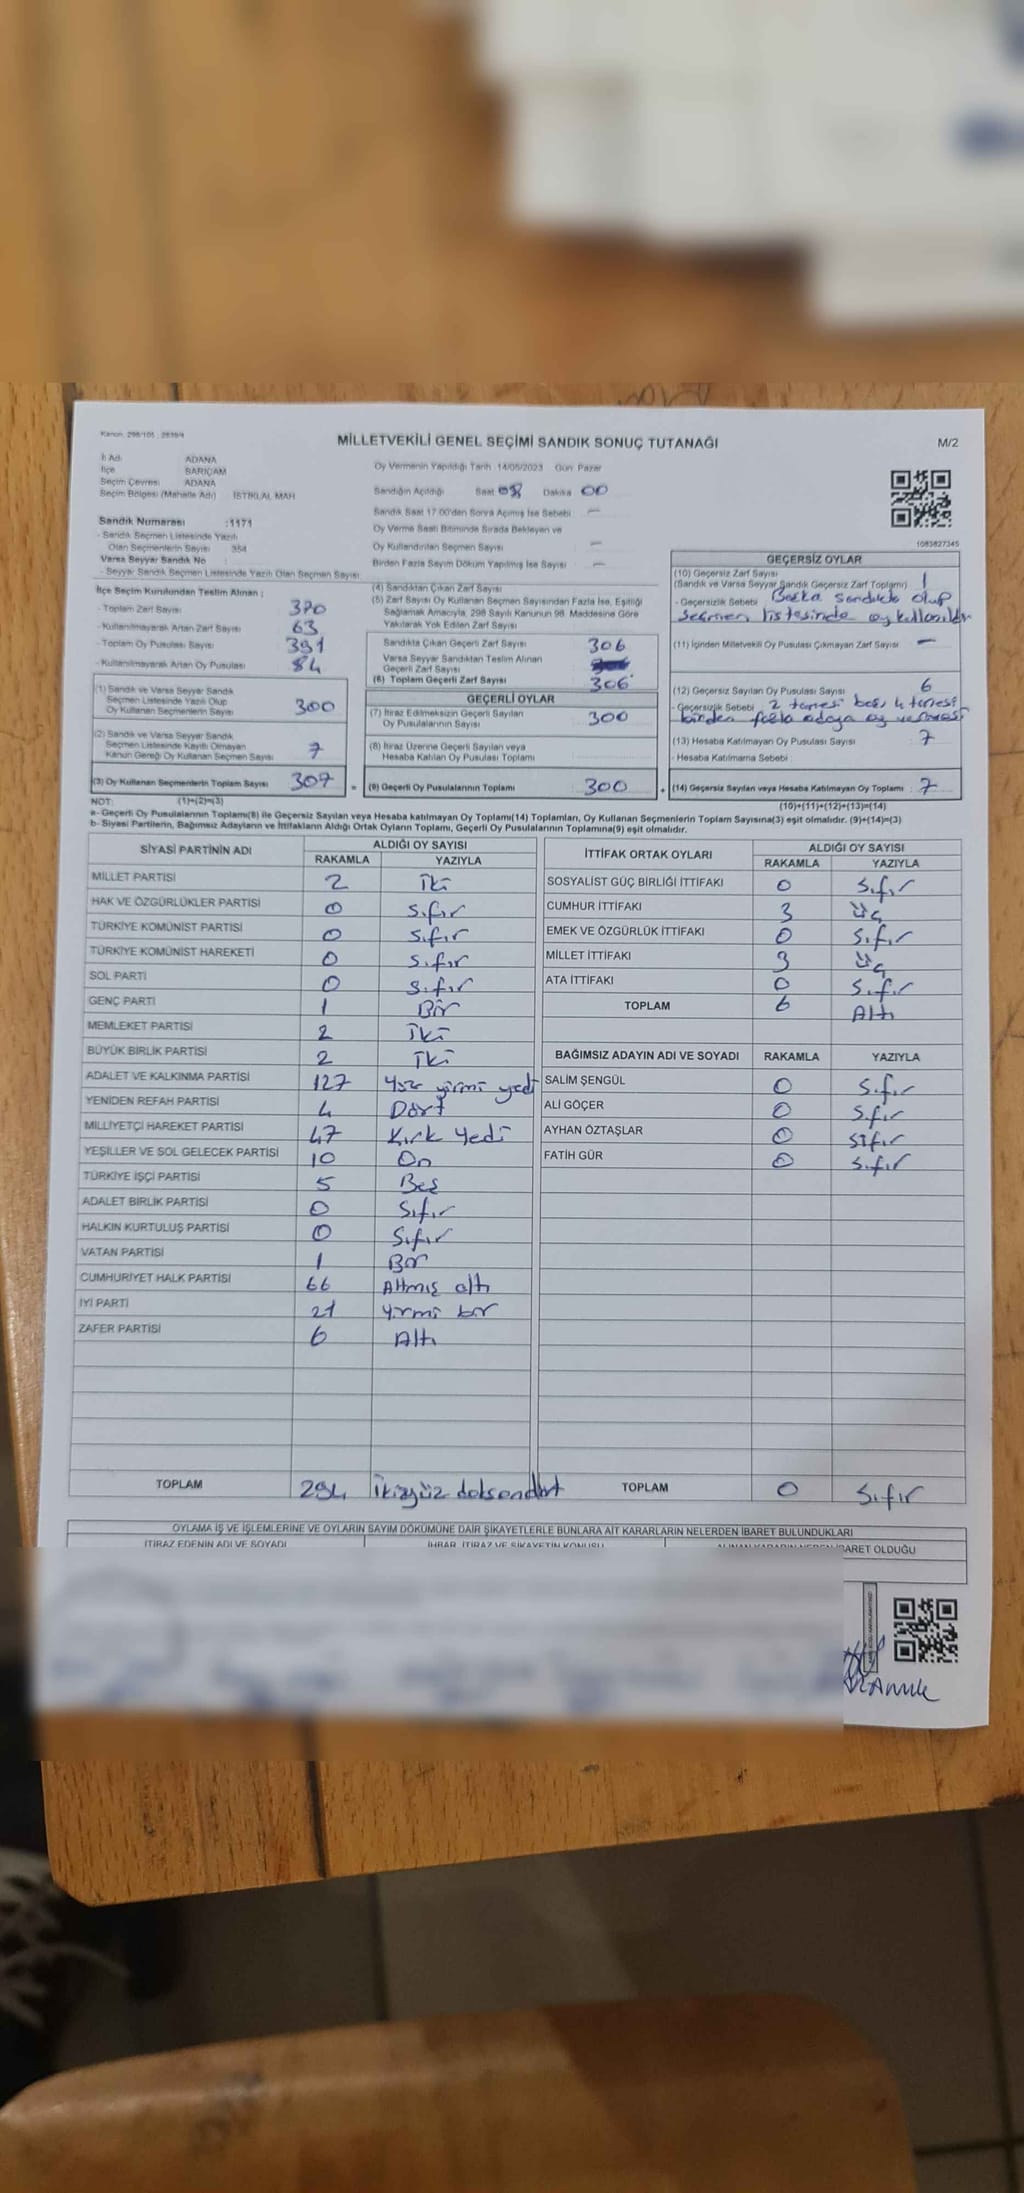 Kanon: 298/105 : 2839/4
MİLLETVEKİLİ GENEL SEÇİMİ SANDIK SONUÇ TUTANAĞI
M/2
İl Adı ADANA
İlçe SARIÇAM
Seçim Çevresi ADANA
Seçim Bölgesi (Mahalle Adı) İSTİKLAL MAH
Sandık Numarası :1171
- Sandık Seçmen Listesinde Yazılı
Olan Seçmenlerin Sayısı 354
Varsa Seyyar Sandık No
- Seyyar Sandık Seçmen Listesinde Yazılı Olan Seçmen Sayısı
Oy Vermenin Yapıldığı Tarih 14/05/2023 Gün Pazar
Sandığın Açıldığı Saat 08 Dakika 00
Sandık Saat 17.00'den Sonra Açılmış İse Sebebi —
Oy Verme Saati Bitiminde Sırada Bekleyen ve
Oy Kullandırılan Seçmen Sayısı —
Birden Fazla Sayım Döküm Yapılmış İse Sayısı —
1083827345
İlçe Seçim Kurulundan Teslim Alınan ;
- Toplam Zarf Sayısı 370
- Kullanılmayarak Artan Zarf Sayısı 63
- Toplam Oy Pusulası Sayısı 391
- Kullanılmayarak Artan Oy Pusulası 84
(1) Sandık ve Varsa Seyyar Sandık
Seçmen Listesinde Yazılı Olup
Oy Kullanan Seçmenlerin Sayısı 300
(2) Sandık ve Varsa Seyyar Sandık
Seçmen Listesinde Kayıtlı Olmayan
Kanun Gereği Oy Kullanan Seçmen Sayısı 7
(3) Oy Kullanan Seçmenlerin Toplam Sayısı 307
(4) Sandıktan Çıkan Zarf Sayısı
(5) Zarf Sayısı Oy Kullanan Seçmen Sayısından Fazla İse, Eşitliği
Sağlamak Amacıyla, 298 Sayılı Kanunun 98. Maddesine Göre
Yakılarak Yok Edilen Zarf Sayısı
Sandıkta Çıkan Geçerli Zarf Sayısı 306
Varsa Seyyar Sandıktan Teslim Alınan
Geçerli Zarf Sayısı
(6) Toplam Geçerli Zarf Sayısı 306
GEÇERLİ OYLAR
(7) İtiraz Edilmeksizin Geçerli Sayılan
Oy Pusulalarının Sayısı 300
(8) İtiraz Üzerine Geçerli Sayılan veya
Hesaba Katılan Oy Pusulası Toplamı
= (9) Geçerli Oy Pusulalarının Toplamı 300
GEÇERSİZ OYLAR
(10) Geçersiz Zarf Sayısı
(Sandık ve Varsa Seyyar Sandık Geçersiz Zarf Toplamı) 1
- Geçersizlik Sebebi Başka sandıkta olup
seçmen listesinde oy kullanıldı
(11) İçinden Milletvekili Oy Pusulası Çıkmayan Zarf Sayısı —
(12) Geçersiz Sayılan Oy Pusulası Sayısı 6
- Geçersizlik Sebebi 2 tanesi boş, 4 tanesi
birden fazla adaya oy vermesi
(13) Hesaba Katılmayan Oy Pusulası Sayısı 7
- Hesaba Katılmama Sebebi :
+ (14) Geçersiz Sayılan veya Hesaba Katılmayan Oy Toplamı : 7
NOT: (1)+(2)=(3)
(10)+(11)+(12)+(13)=(14)
a- Geçerli Oy Pusulalarının Toplamı(9) ile Geçersiz Sayılan veya Hesaba katılmayan Oy Toplamı(14) Toplamları, Oy Kullanan Seçmenlerin Toplam Sayısına(3) eşit olmalıdır. (9)+(14)=(3)
b- Siyasi Partilerin, Bağımsız Adayların ve İttifakların Aldığı Ortak Oyların Toplamı, Geçerli Oy Pusulalarının Toplamına(9) eşit olmalıdır.
SİYASİ PARTİNİN ADI ALDIĞI OY SAYISI
RAKAMLA YAZIYLA
MİLLET PARTİSİ 2 İki
HAK VE ÖZGÜRLÜKLER PARTİSİ 0 Sıfır
TÜRKİYE KOMÜNİST PARTİSİ 0 Sıfır
TÜRKİYE KOMÜNİST HAREKETİ 0 Sıfır
SOL PARTİ 0 Sıfır
GENÇ PARTİ 1 Bir
MEMLEKET PARTİSİ 2 İki
BÜYÜK BİRLİK PARTİSİ 2 İki
ADALET VE KALKINMA PARTİSİ 127 Yüz yirmi yedi
YENİDEN REFAH PARTİSİ 4 Dört
MİLLİYETÇİ HAREKET PARTİSİ 47 Kırk Yedi
YEŞİLLER VE SOL GELECEK PARTİSİ 10 On
TÜRKİYE İŞÇİ PARTİSİ 5 Beş
ADALET BİRLİK PARTİSİ 0 Sıfır
HALKIN KURTULUŞ PARTİSİ 0 Sıfır
VATAN PARTİSİ 1 Bir
CUMHURİYET HALK PARTİSİ 66 Altmış altı
İYİ PARTİ 21 Yirmi bir
ZAFER PARTİSİ 6 Altı
TOPLAM 294 İkiyüz doksandört
İTTİFAK ORTAK OYLARI ALDIĞI OY SAYISI
RAKAMLA YAZIYLA
SOSYALİST GÜÇ BİRLİĞİ İTTİFAKI 0 Sıfır
CUMHUR İTTİFAKI 3 Üç
EMEK VE ÖZGÜRLÜK İTTİFAKI 0 Sıfır
MİLLET İTTİFAKI 3 Üç
ATA İTTİFAKI 0 Sıfır
TOPLAM 6 Altı
BAĞIMSIZ ADAYIN ADI VE SOYADI RAKAMLA YAZIYLA
SALİM ŞENGÜL 0 Sıfır
ALİ GÖÇER 0 Sıfır
AYHAN ÖZTAŞLAR 0 Sıfır
FATİH GÜR 0 Sıfır
TOPLAM 0 Sıfır
OYLAMA İŞ VE İŞLEMLERİNE VE OYLARIN SAYIM DÖKÜMÜNE DAİR ŞİKAYETLERLE BUNLARA AİT KARARLARIN NELERDEN İBARET BULUNDUKLARI
İTİRAZ EDENİN ADI VE SOYADI İHBAR, İTİRAZ VE ŞİKAYETİN KONUSU ALINAN KARARIN NEDEN İBARET OLDUĞU